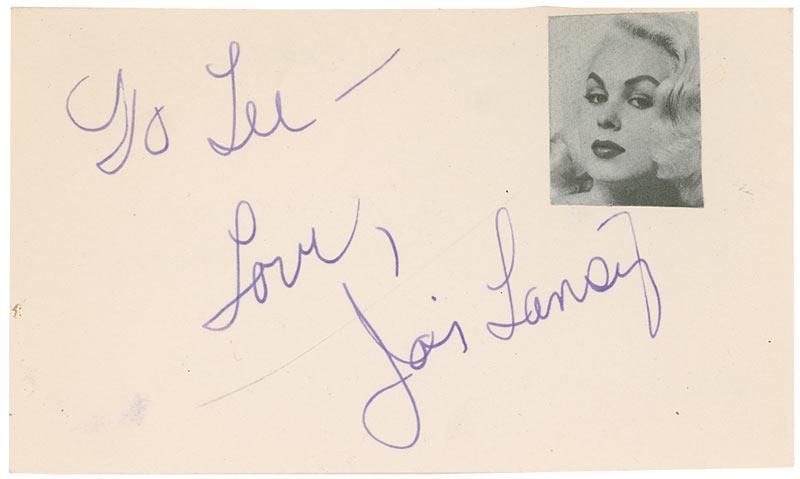 To Lee —
Love,
Joi Lansing